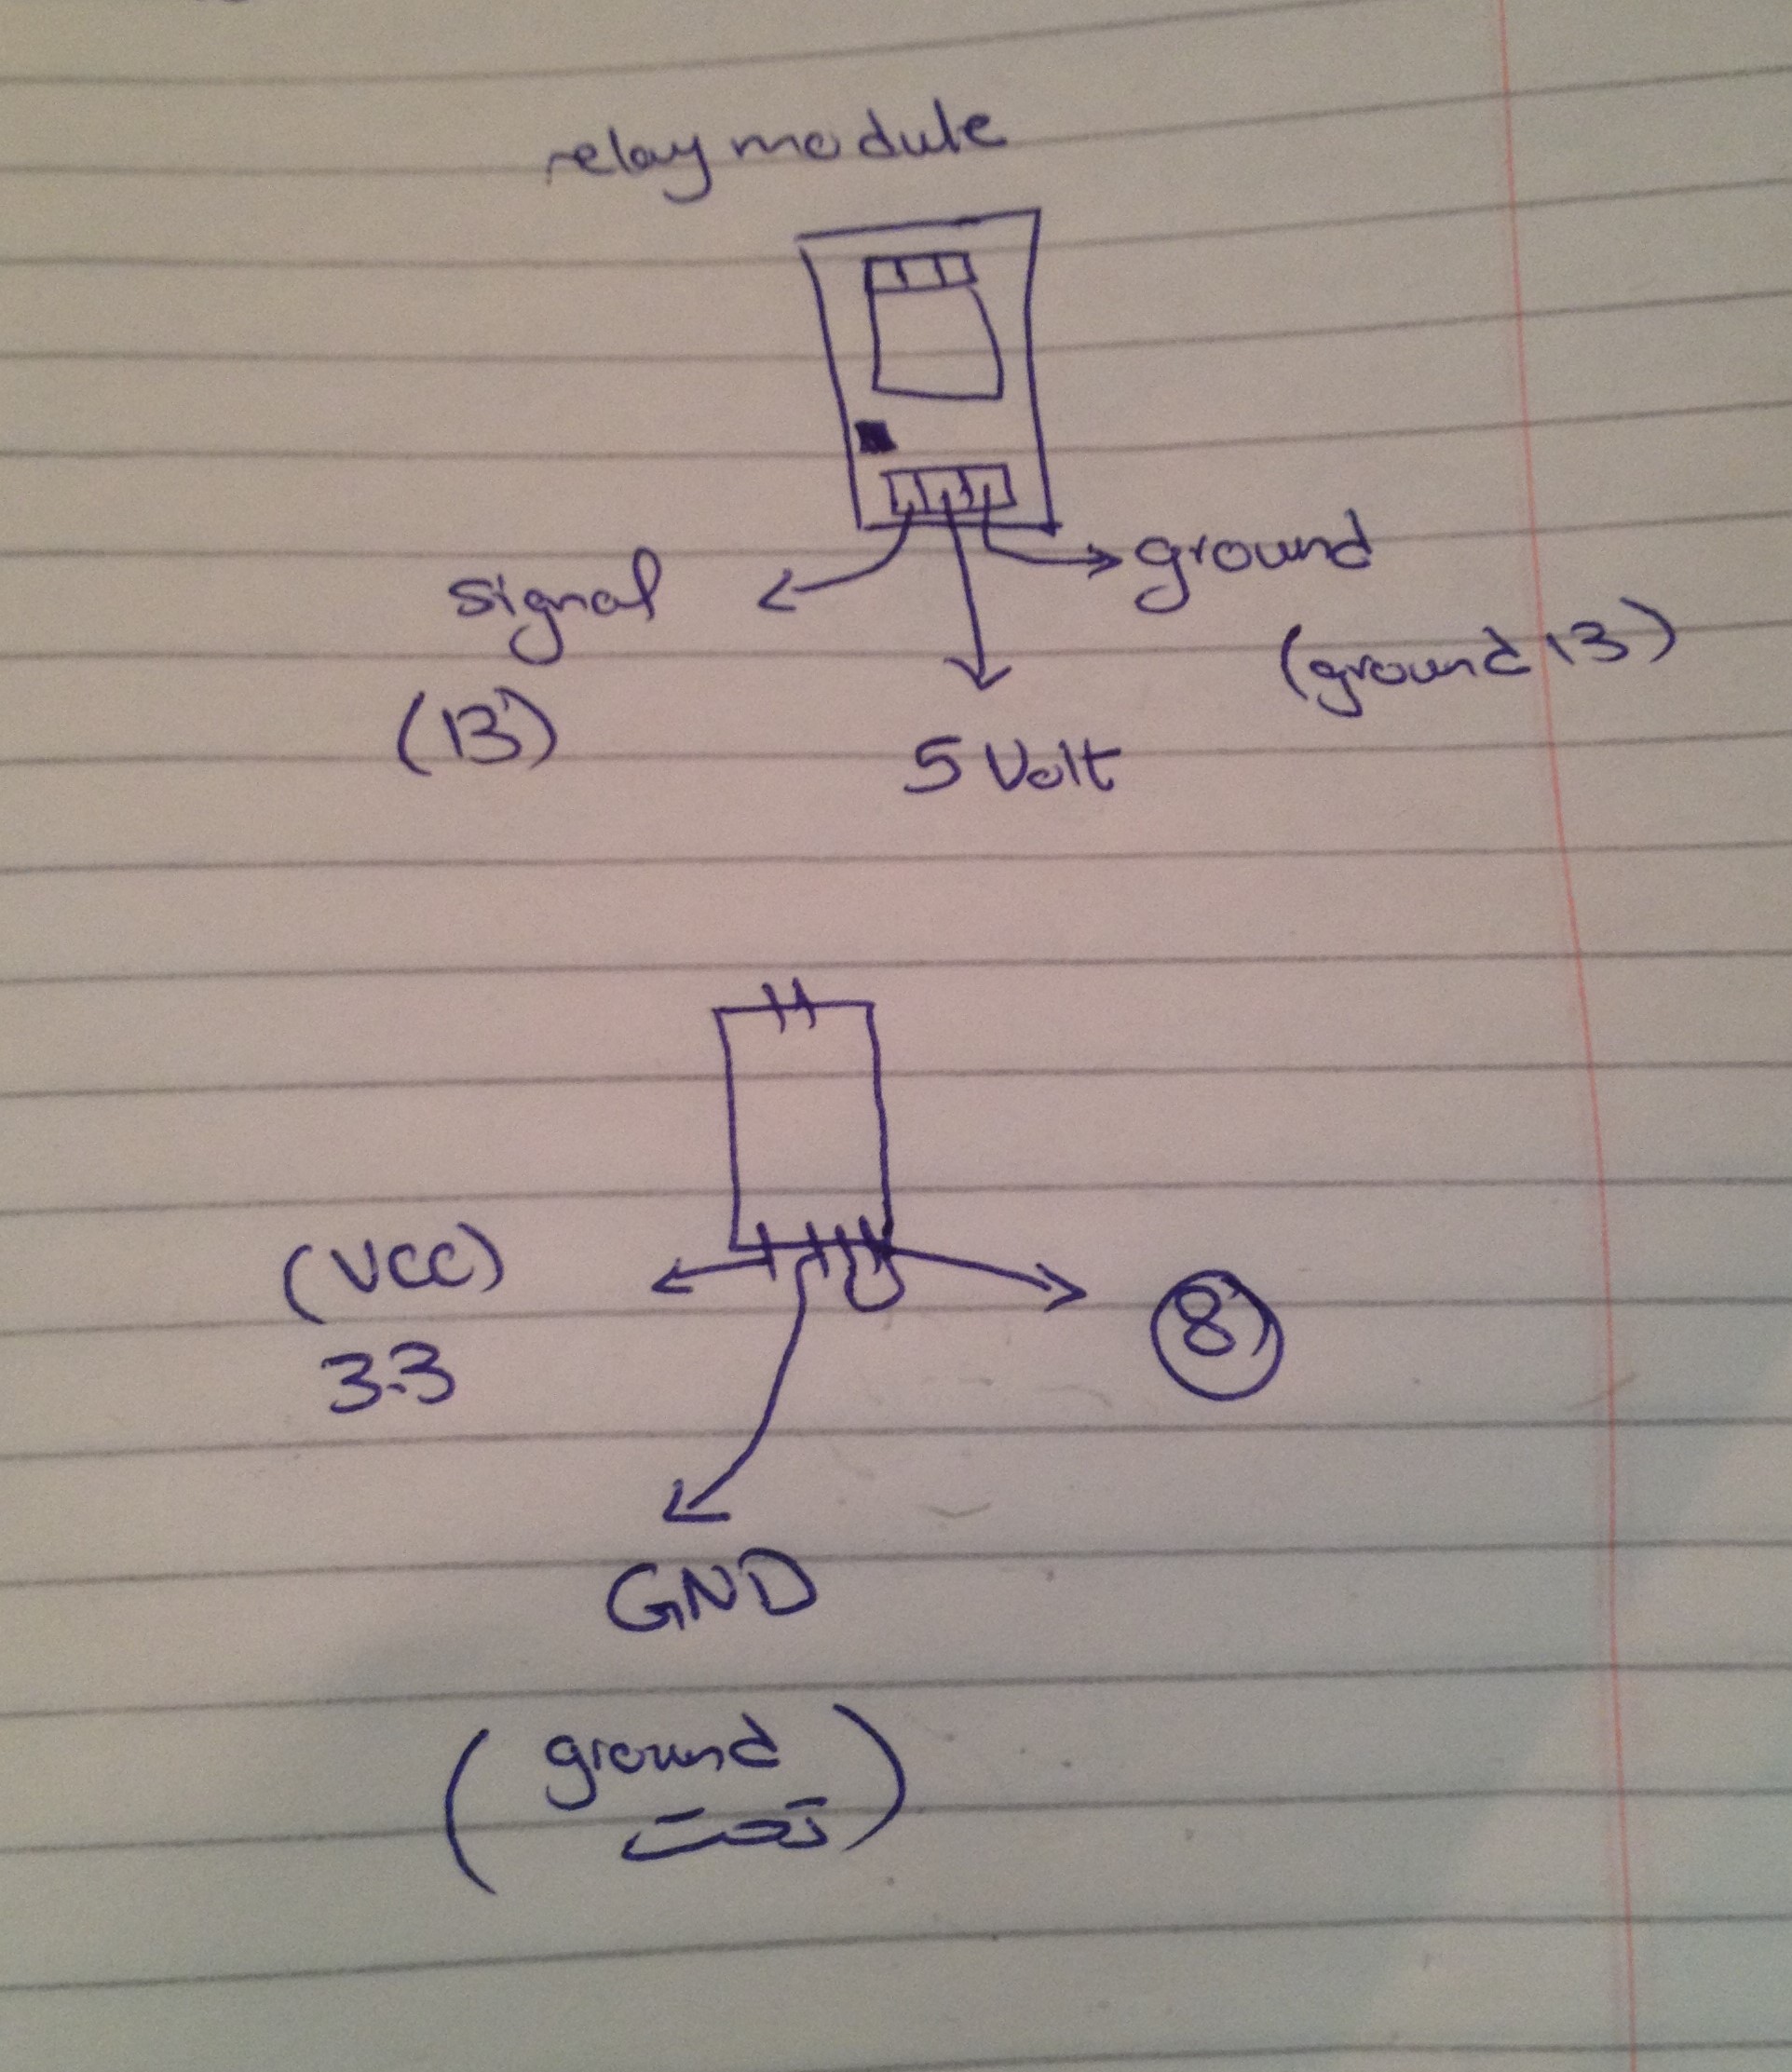 relay module
signal
(13)
5 Volt
ground
(ground 13)
(VCC)
3.3
8
GND
(ground
تحت)